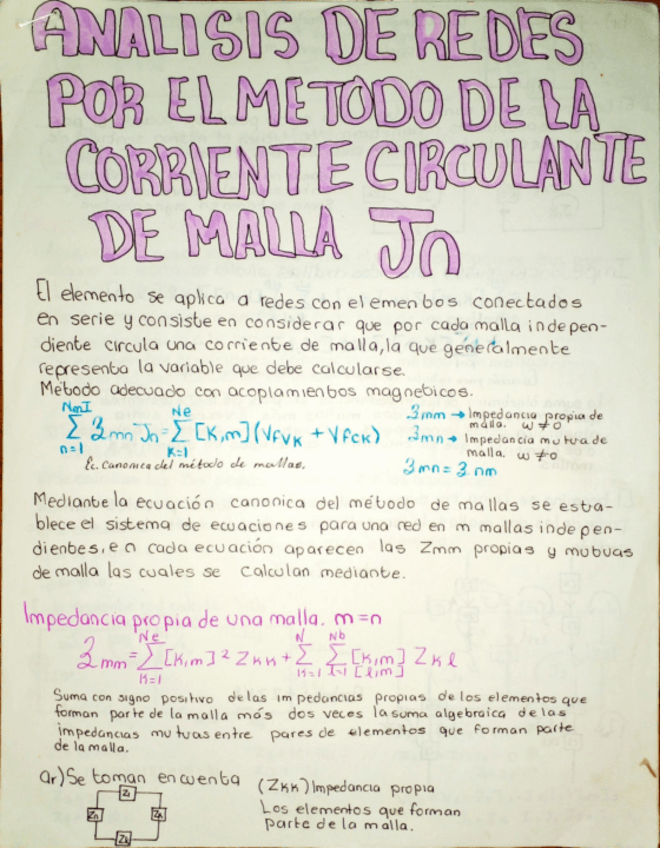 ANALISIS DE REDES
POR EL METODO DE LA
CORRIENTE CIRCULANTE
DE MALLA Jn
El elemento se aplica a redes con elementos conectados
en serie y consiste en considerar que por cada malla indepen-
diente circula una corriente de malla, la que generalmente
representa la variable que debe calcularse.
Método adecuado con acoplamientos magneticos.
NmI Σ n=1 Zmn Jn = Ne Σ K=1 [K,m] (VfVK + VfCK)
Ec. Canonica del método de mallas.
Zmm → Impedancia propia de
malla. ω≠0
Zmn → Impedancia mutua de
malla. ω≠0
Zmn = Znm
Mediante la ecuación canonica del método de mallas se esta-
blece el sistema de ecuaciones para una red en m mallas indepen-
dientes, en cada ecuación aparecen las Zmm propias y mutuas
de malla las cuales se calculan mediante.
Impedancia propia de una malla. m=n
Zmm = Ne Σ K=1 [K,m]² ZKK + N Σ K=1 Nb Σ l=1 [K,m] [l,m] ZKl
Suma con signo positivo de las impedancias propias de los elementos que
forman parte de la malla más dos veces la suma algebraica de las
impedancias mutuas entre pares de elementos que forman parte
de la malla.
ar) Se toman en cuenta (ZKK) Impedancia propia
Los elementos que forman
parte de la malla.